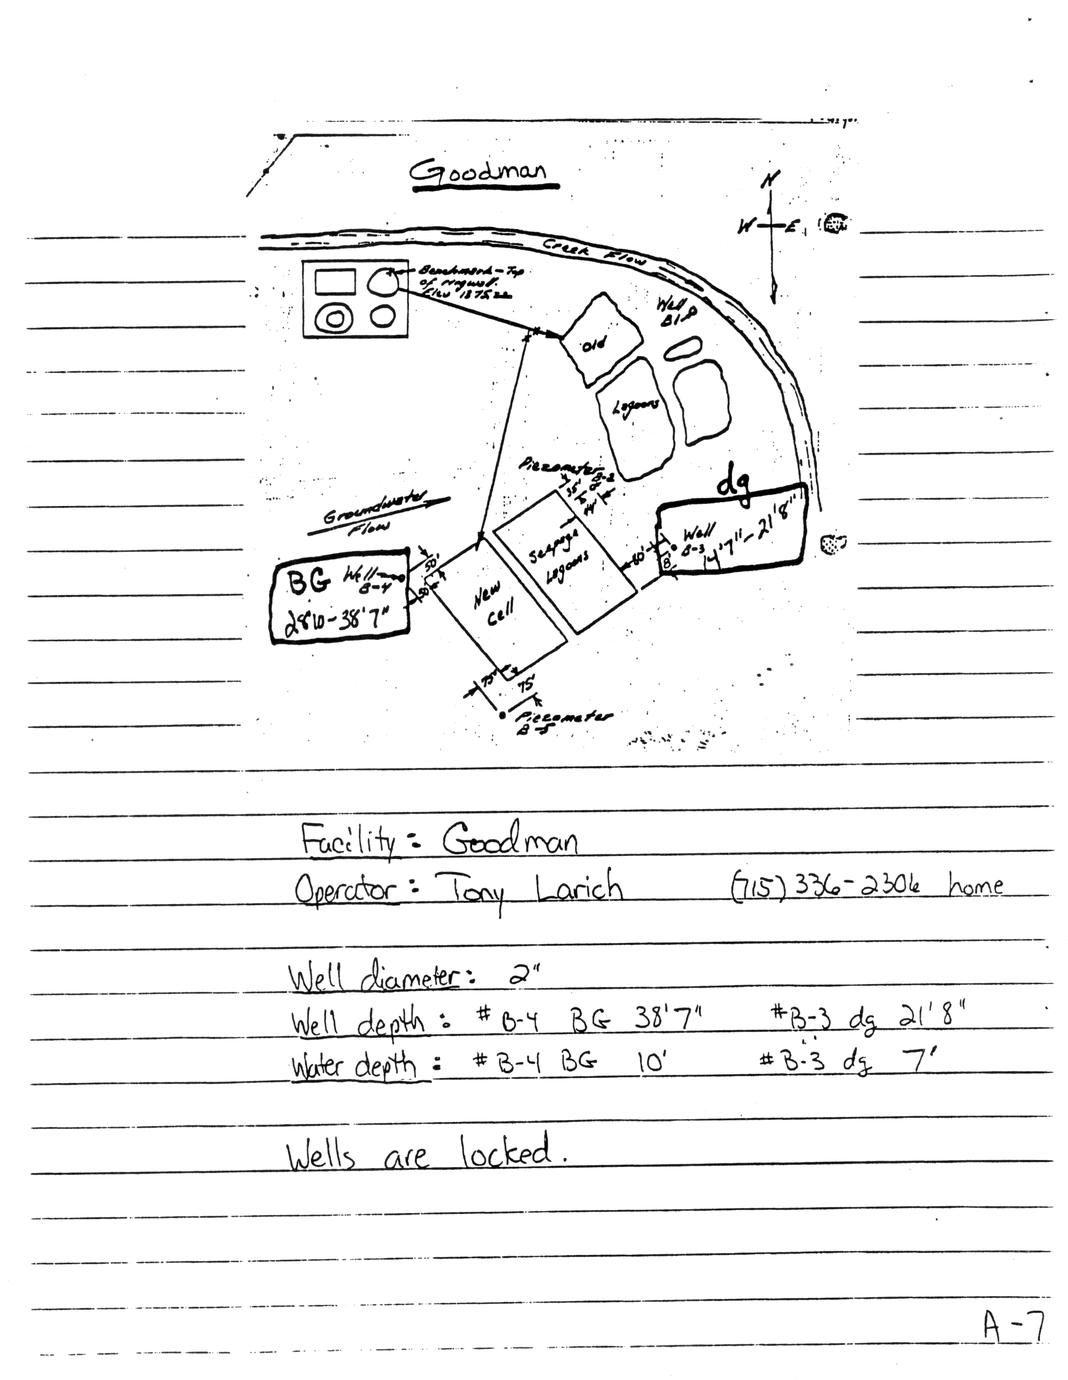 Goodman
N
W E
Creek Flow
Benchmark - Top
of ringwall.
Elev 1375.22
Well
B1
Old
Lagoons
Piezometer
B-2
35'
44'
dg
Groundwater
Flow
Well
B-3
14'7" - 21'8"
60'
8'
Seepage
Lagoons
BG Well
B-4
28'10 - 38'7"
50'
50'
New
cell
75'
75'
Piezometer
B-5
Facility: Goodman
Operator: Tony Larich (715) 336-2306 home
Well diameter: 2"
Well depth: # B-4 BG 38'7" #B-3 dg 21'8"
Water depth: # B-4 BG 10' #B-3 dg 7'
Wells are locked.
A-7